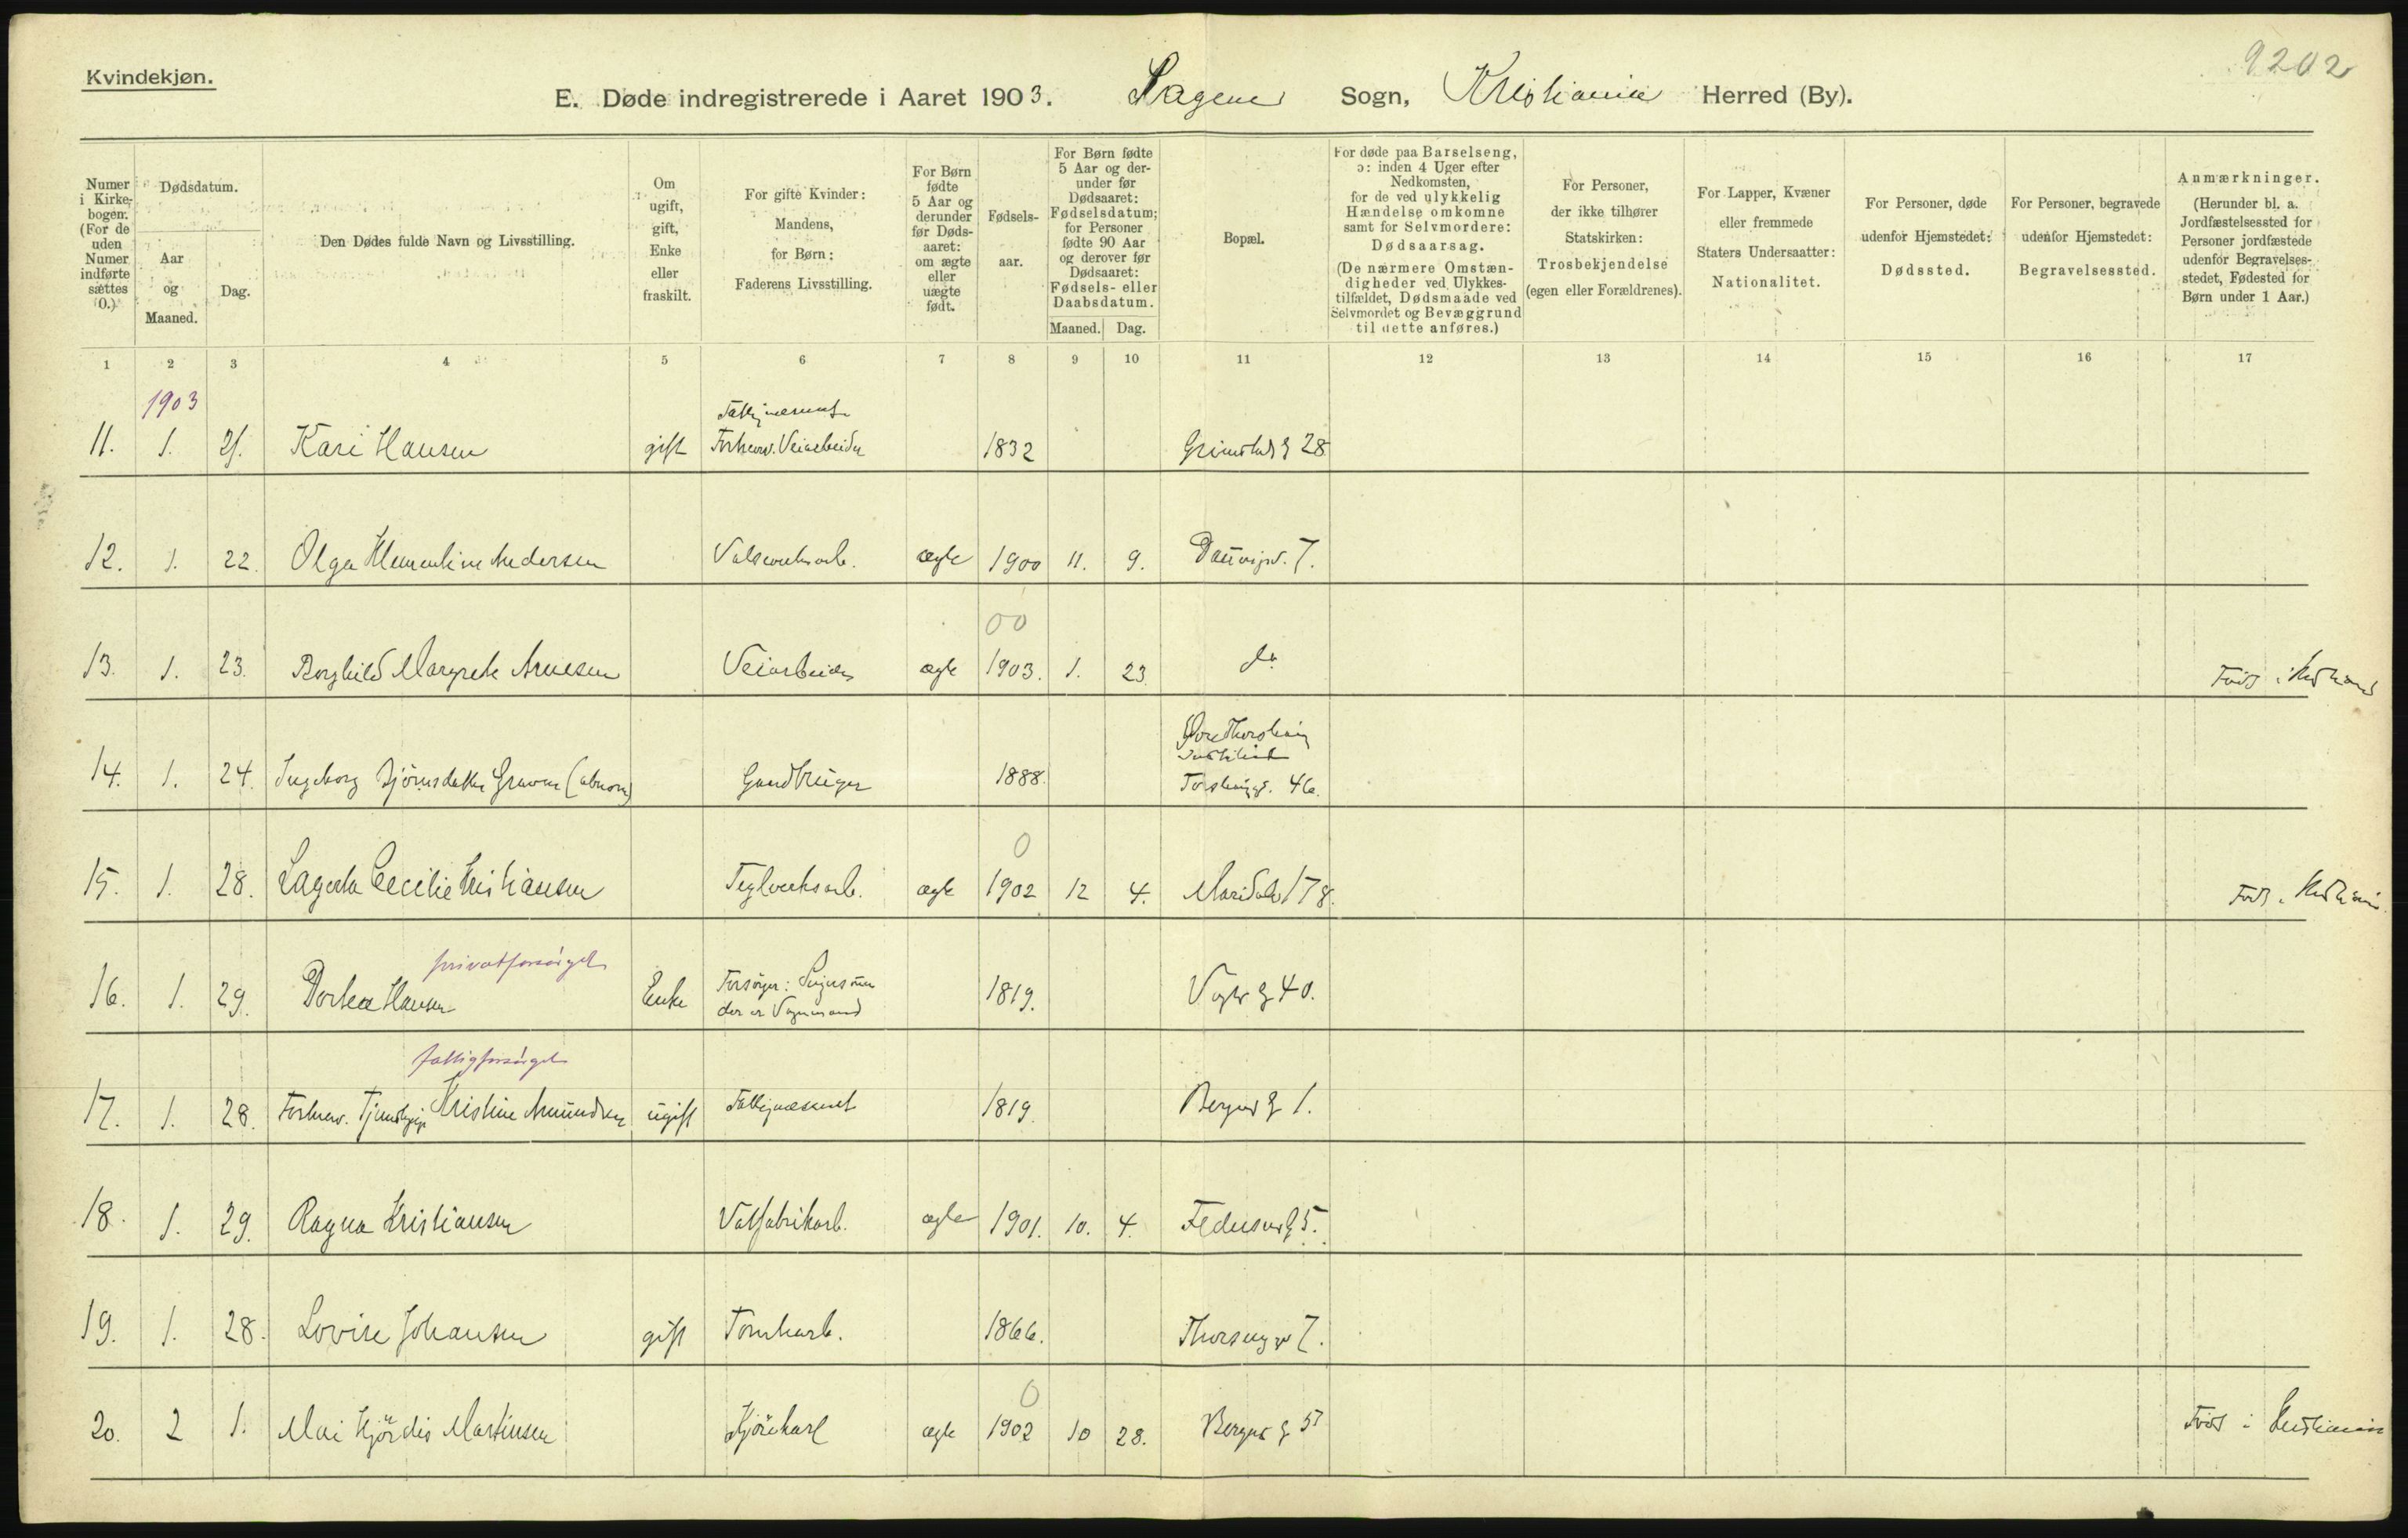 9202
Kvindekjøn.
E. Døde indregistrerede i Aaret 1903. Sagene Sogn, Kristiania Herred (By).
Numer i Kirkebogen. (For de uden Numer indførte sættes 0.)
Dødsdatum.
Aar og Maaned.
Dag.
Den Dødes fulde Navn og Livsstilling.
Om ugift, gift, Enke eller fraskilt.
For gifte Kvinder: Mandens, for Børn: Faderens Livsstilling.
For Børn fødte 5 Aar og derunder før Dødsaaret: om ægte eller uægte født.
Fødselsaar.
For Børn fødte 5 Aar og derunder før Dødsaaret: Fødselsdatum; for Personer fødte 90 Aar og derover før Dødsaaret: Fødsels- eller Daabsdatum.
Maaned. Dag.
Bopæl.
For døde paa Barselseng, ɔ: inden 4 Uger efter Nedkomsten, for de ved ulykkelig Hændelse omkomne samt for Selvmordere: Dødsaarsag. (De nærmere Omstændigheder ved Ulykkestilfældet, Dødsmaade ved Selvmordet og Bevæggrund til dette anføres.)
For Personer, der ikke tilhører Statskirken: Trosbekjendelse (egen eller Forældrenes).
For Lapper, Kvæner eller fremmede Staters Undersaatter: Nationalitet.
For Personer, døde udenfor Hjemstedet: Dødssted.
For Personer, begravede udenfor Hjemstedet: Begravelsessted.
Anmærkninger. (Herunder bl. a. Jordfæstelsessted for Personer jordfæstede udenfor Begravelsesstedet, Fødested for Børn under 1 Aar.)
1 2 3 4 5 6 7 8 9 10 11 12 13 14 15 16 17
1903
11. 1. 21. Kari Hansen gift Forhenv. Veiarbeider 1832 Grimstadg 28
12. 1. 22. Olga Klementine Andersen ægte 1900 11. 9. 7.
00
13. 1. 23. Borghild Margrete Arnesen Veiarbeider ægte 1903. 1. 23. do Født i Kristiania
14. 1. 24. Ingeborg Bjørnsdatter (abnorm) Gaardbruger 1888. 46.
0
15. 1. 28. Lagerta Cecilie Kristiansen Teglverksarb. ægte 1902 12 4. Maridalsv 178. Født i Kristiania
privatforsørget
16. 1. 29. Dorthea Hansen Enke Forsørger: der er Vognmand 1819. Vogtsg 40.
fattigforsørget
17. 1. 28. Forhenv. Tjenestepige Kristine Amundsen ugift Fattigvæsenet 1819. Bergensg 1.
18. 1. 29. Ragna Kristiansen Vatfabrikarb. ægte 1901. 10. 4. 5.
19. 1. 28. Lovise Johansen gift Tomtearb. 1866. 7.
0
20. 2 1. Mai Hjördis Martinsen Kjörekarl ægte 1902 10 28. Bergensg 57 Født i Kristiania